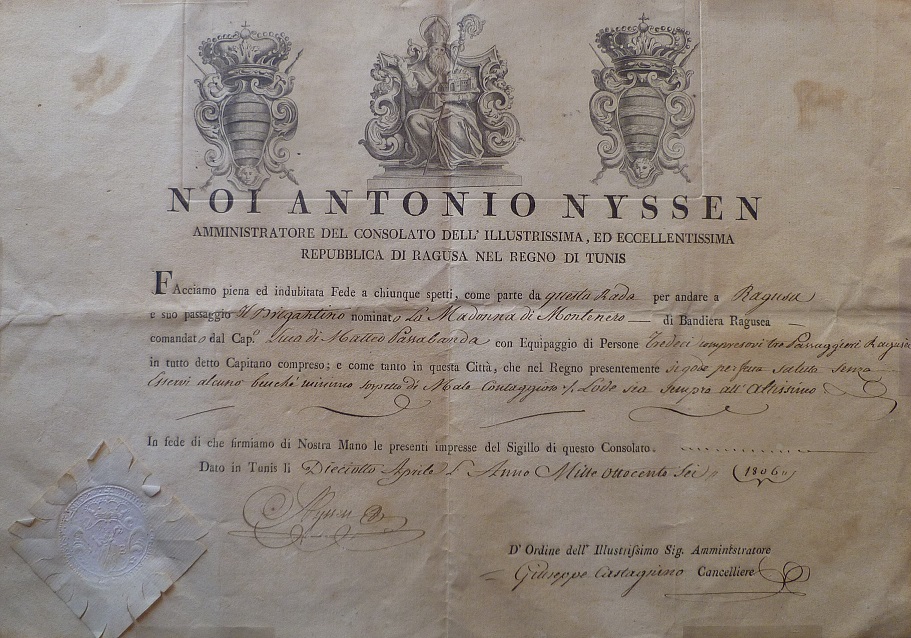 NOI ANTONIO NYSSEN
AMMINISTRATORE DEL CONSOLATO DELL' ILLUSTRISSIMA, ED ECCELLENTISSIMA
REPUBBLICA DI RAGUSA NEL REGNO DI TUNIS
FAcciamo piena ed indubitata Fede a chiunque spetti, come parte da questa Rada per andare a Ragusa
e suo passaggio Il Brigantino nominato La Madonna di Montenero di Bandiera Ragusea
comandato dal Cap.º Luca di Matteo Passabanda con Equipaggio di Persone Tredeci compresovi tre Passaggieri Ragusei
in tutto detto Capitano compreso; e come tanto in questa Città, che nel Regno presentemente si gode perfetta salute senza
Esservi alcuno benché minimo sospetto di Male Contaggioso s. Lode sia sempre all'Altissimo
In fede di che firmiamo di Nostra Mano le presenti impresse del Sigillo di questo Consolato.
Dato in Tunis li Dieciotto Aprile L'Anno Mille ottocento Sei (1806)
Nyssen
D' Ordine dell' Illustrissimo Sig. Amministratore
Giuseppe Castagnino Cancelliere